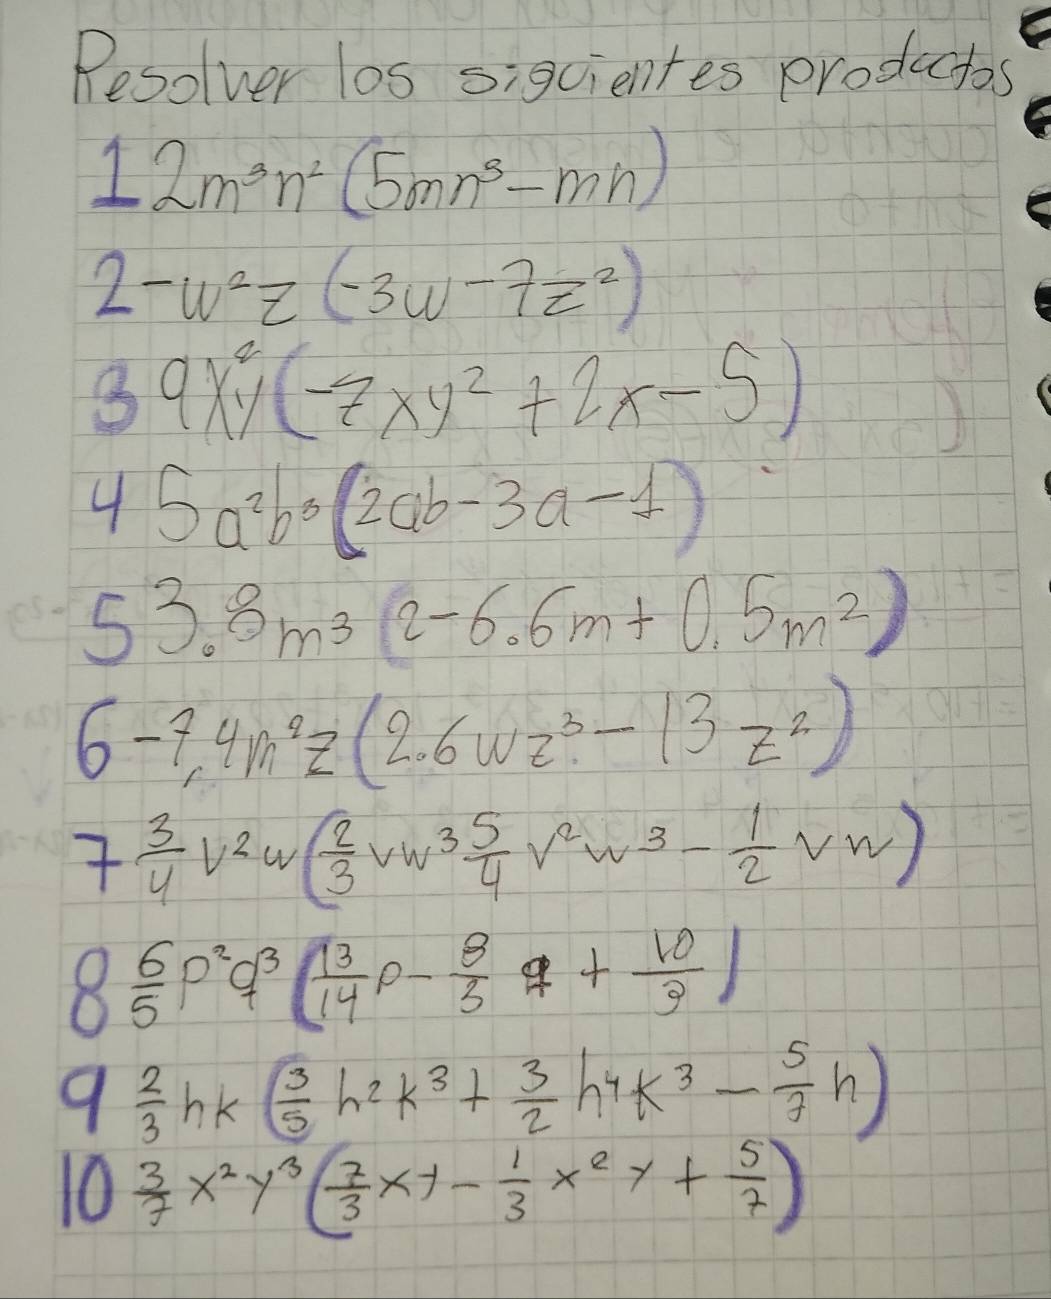 Resolver los siguientes productos
1 2m³n² (5mn³-mn)
2 -w²z (-3w-7z²)
3 9x²y (-7xy² + 2x - 5)
4 5a²b³ (2ab-3a-1)
5 3.8m³ (2-6.6m+0.5m²)
6 -7,4m²z (2.6wz³-13z²)
7 3/4 v²w (2/3 vw³ 5/4 v²w³ - 1/2 vw)
8 6/5 p²q³ (13/14 p - 8/3 q + 10/9)
9 2/3 hk (3/5 h²k³ + 3/2 h⁴k³ - 5/7 h)
10 3/7 x²y³ (7/3 xy - 1/3 x²y + 5/7)